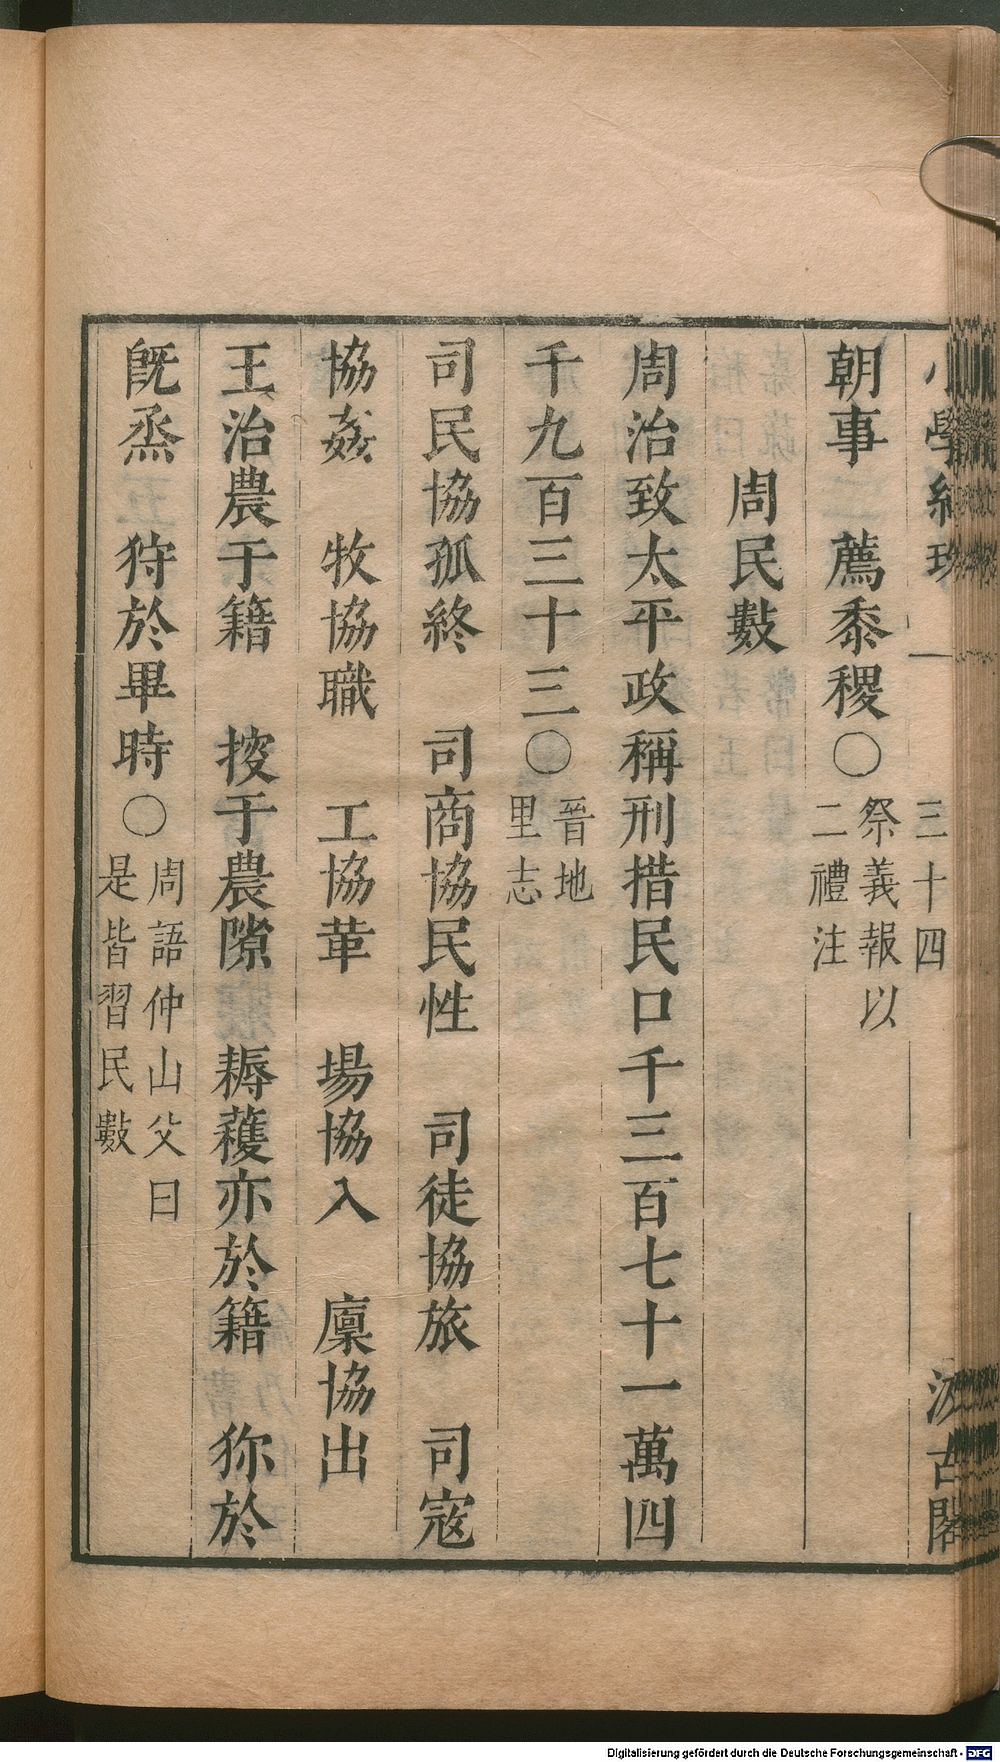 小學紺珠 一 三十四 汲古閣
朝事 薦黍稷○祭義報以二禮注
周民數
周治致太平政稱刑措民口千三百七十一萬四
千九百三十三○晉地里志
司民協孤終 司商協民性 司徒協旅 司寇
協姦 牧協職 工協革 場協入 廩協出
王治農于籍 搜于農隙 耨穫亦於籍 狝於
旣烝 狩於畢時○周語仲山父曰是皆習民數
Digitalisierung gefördert durch die Deutsche Forschungsgemeinschaft - DFG